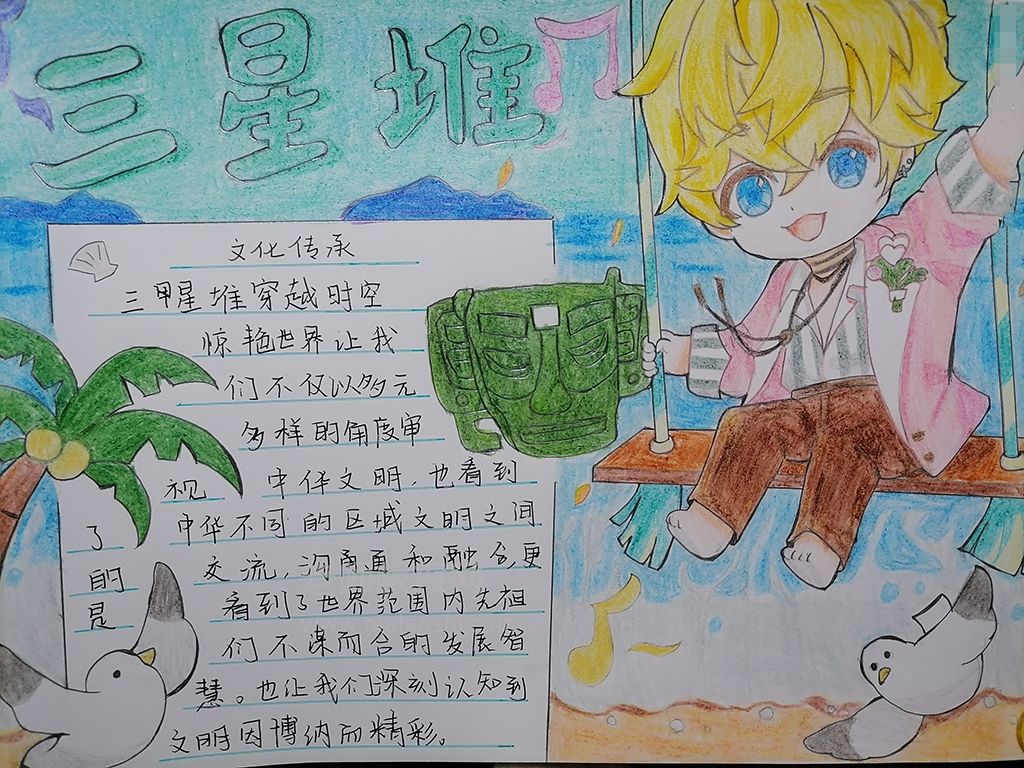 三星堆
文化传承
三星堆穿越时空
惊艳世界让我
们不仅以多元
多样的角度审
视 中华文明，也看到
了 中华不同的区域文明之间
的 交流，沟通和融合，更
是 看到了世界范围内先祖
们不谋而合的发展智
慧。也让我们深刻认知到
文明因博纳而精彩。